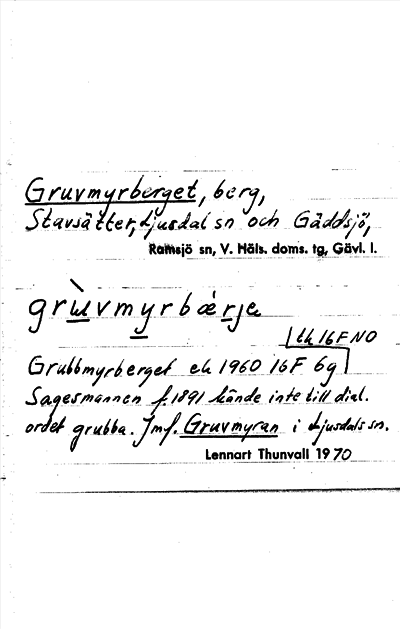 Gruvmyrberget, berg,
Stavsätter, Ljusdal sn och Gäddsjö,
Ramsjö sn, V. Häls. doms. tg, Gävl. l.
grùvmyrbǽrje
ek 16F NO
Grubbmyrberget ek 1960 16F 6g
Sagesmannen f. 1891 kände inte till dial.
ordet grubba. Jmf. Gruvmyran i Ljusdals sn.
Lennart Thunvall 1970